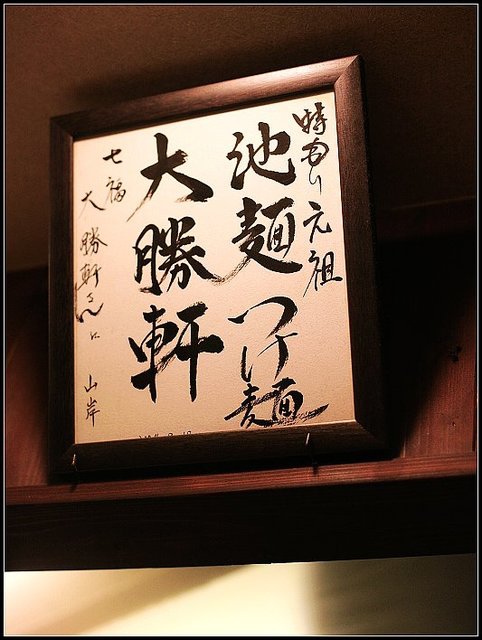 元祖
池麺つけ麺
大勝軒
七福
大勝軒さんに
山岸